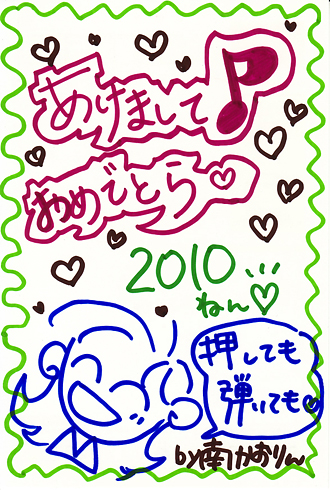 あけまして
おめでとう♡
2010...
ねん♡
押しても
弾いても♡
by南かおりん